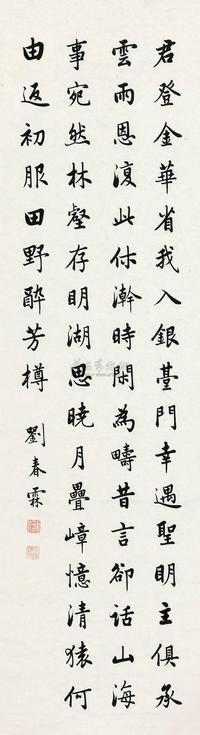 君登金華省我入銀臺門幸遇聖明主俱承
雲雨恩復此休澣時閑為疇昔言卻話山海
事宛然林壑存明湖思曉月疊嶂憶清猿何
由返初服田野醉芳樽
劉春霖